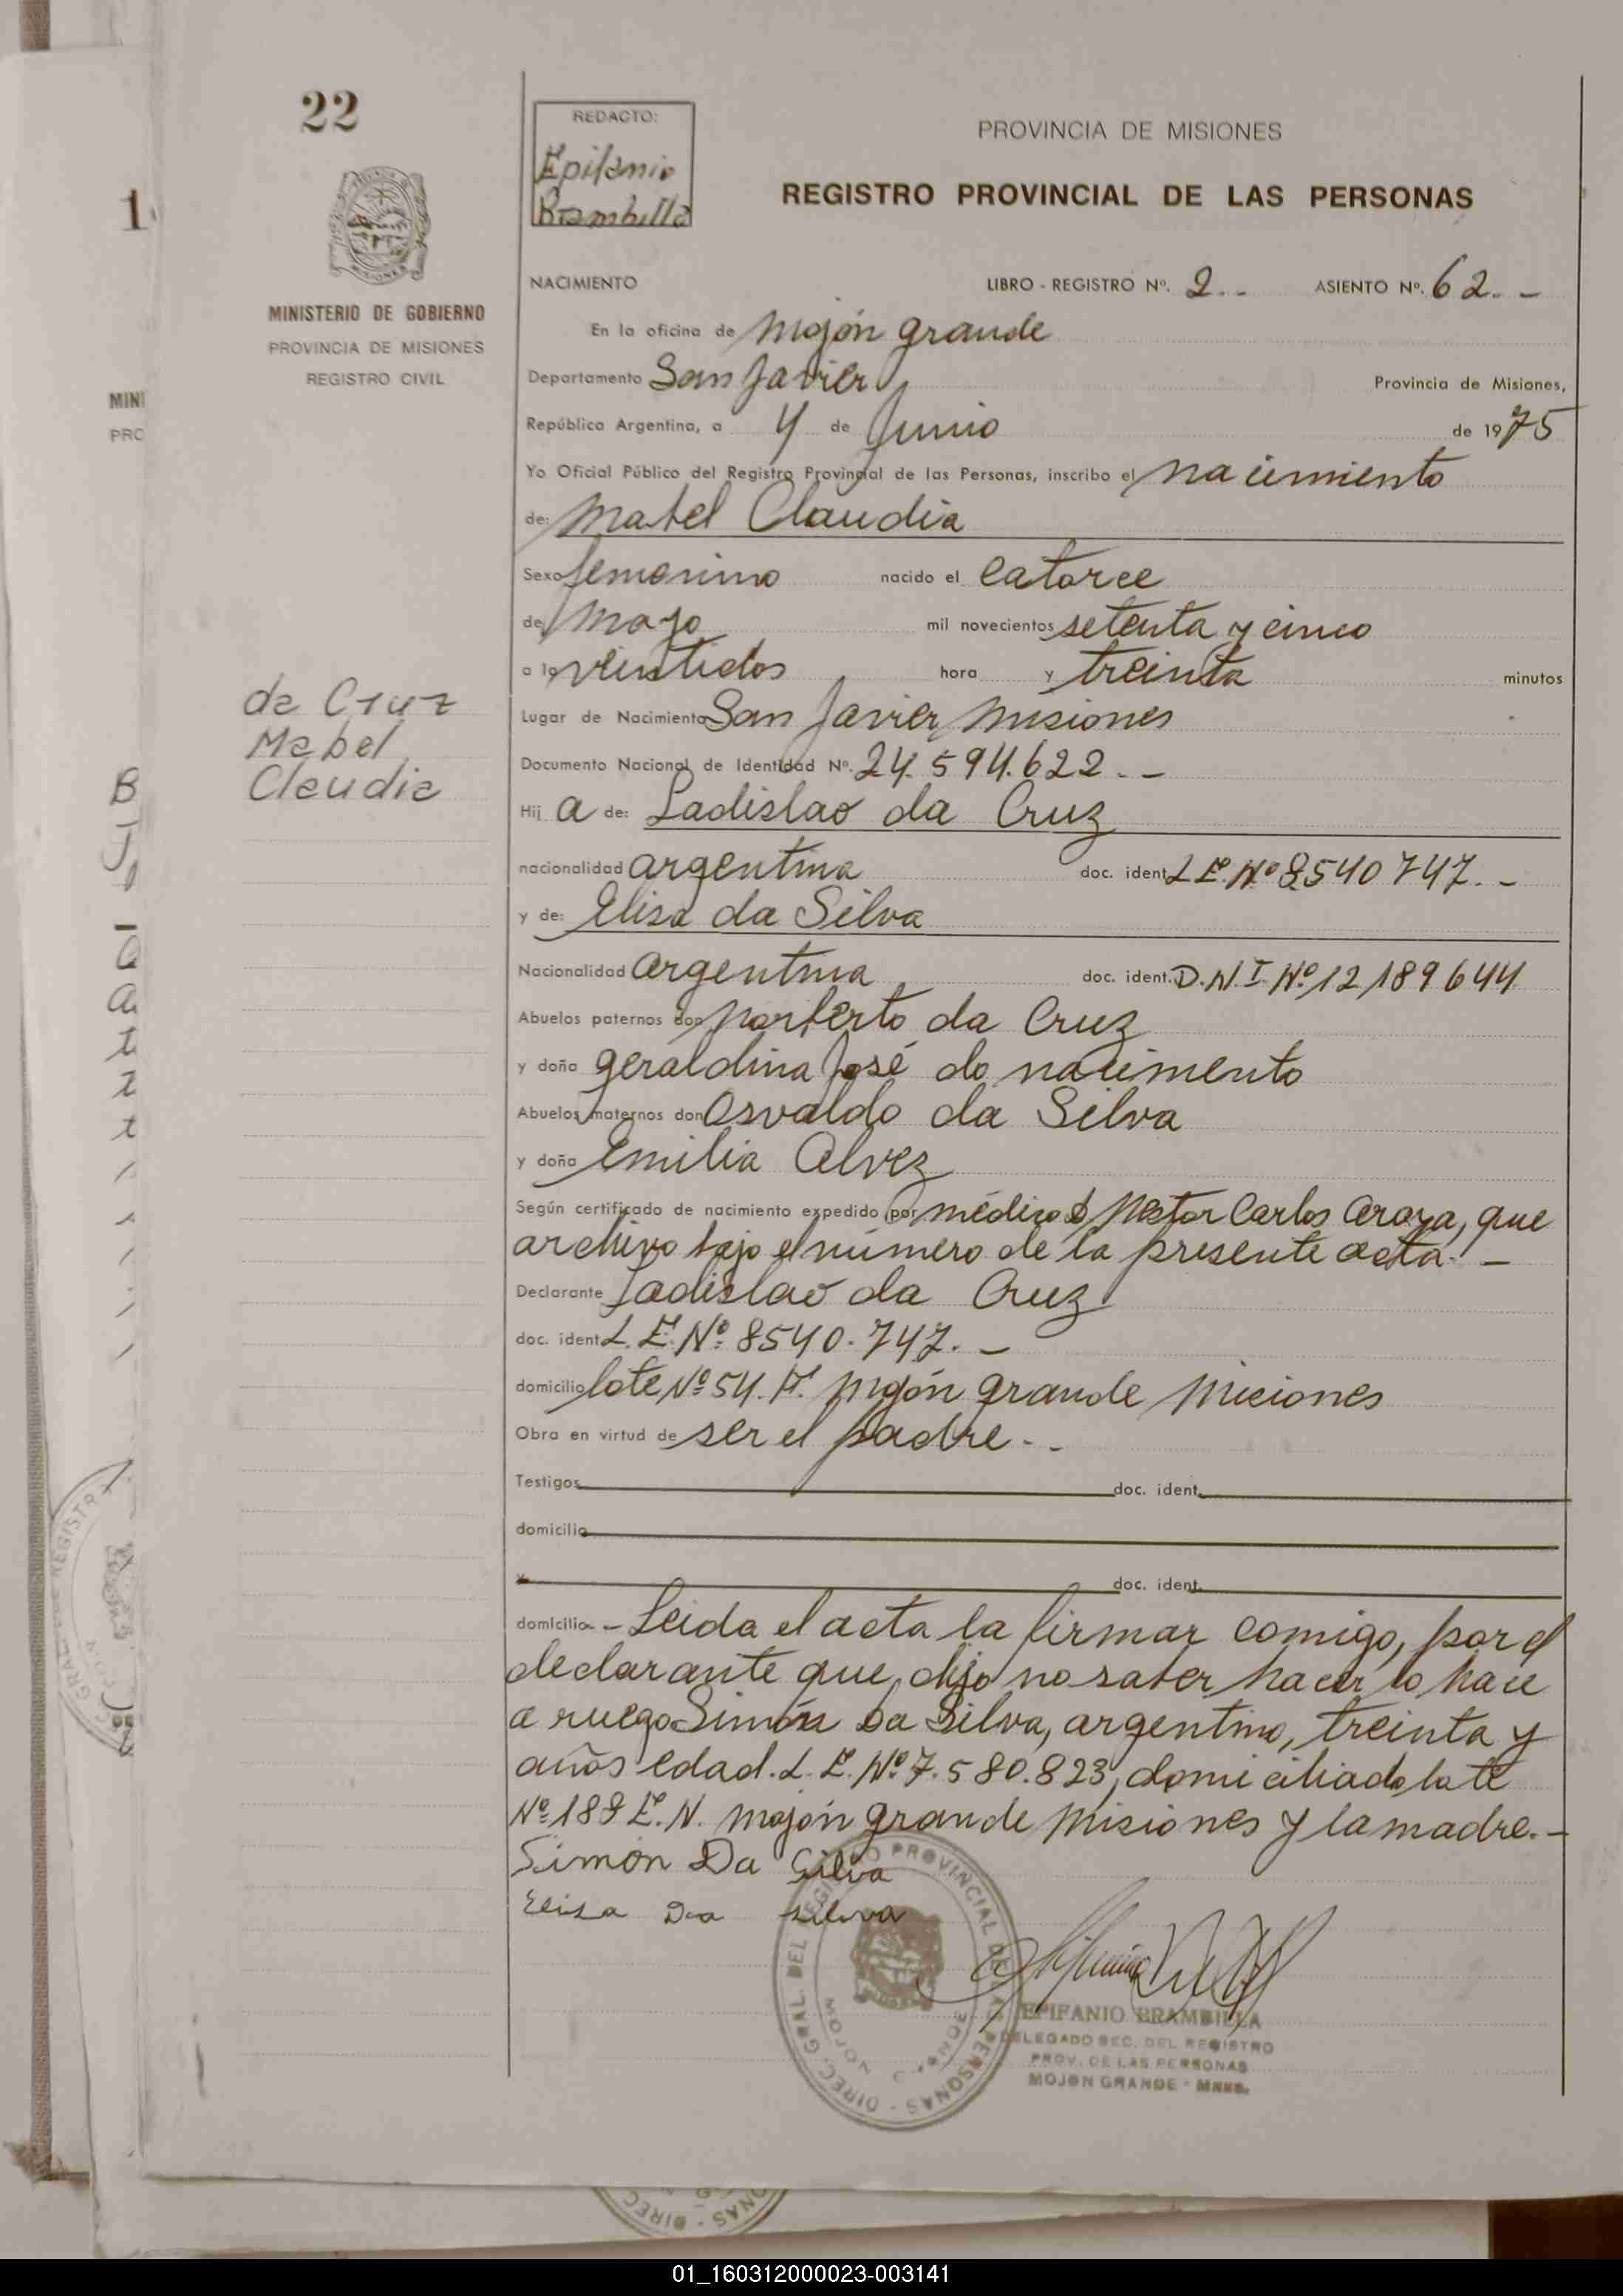 22
REDACTO:
Epifanio
Brambilla
PROVINCIA DE MISIONES
REGISTRO PROVINCIAL DE LAS PERSONAS
MINISTERIO DE GOBIERNO
PROVINCIA DE MISIONES
REGISTRO CIVIL
NACIMIENTO LIBRO - REGISTRO Nº. 2.- ASIENTO Nº. 62.-
En la oficina de Mojón grande
Departamento San Javier Provincia de Misiones,
República Argentina, a 4 de Junio de 1975
Yo Oficial Público del Registro Provincial de las Personas, inscribo el nacimiento
de: Mabel Claudia
Sexo femenino nacido el catorce
de Mayo mil novecientos setenta y cinco
a la veintidos hora y treinta minutos
da Cruz
Mabel
Claudia
Lugar de Nacimiento San Javier, Misiones
Documento Nacional de Identidad Nº. 24.594.622.-
Hij a de: Ladislao da Cruz
nacionalidad argentina doc. ident. L.E. Nº 8540747.-
y de: Elisa da Silva
Nacionalidad argentina doc. ident. D.N.I. Nº 12189644
Abuelos paternos don Norberto da Cruz
y doña geraldina José do nacimento
Abuelos maternos don Osvaldo da Silva
y doña Emilia Alvez
Según certificado de nacimiento expedido por médico Nestor Carlos Araya, que
archivo bajo el número de la presente acta.-
Declarante Ladislao da Cruz
doc. ident. L.E. Nº 8540.747.-
domicilio lote Nº 54. F. Mojón grande Miciones
Obra en virtud de ser el padre.-
Testigos doc. ident.
domicilio
y doc. ident.
domicilio - Leida el acta la firmar comigo, por el
declarante que dijo no saber hacer lo hace
a ruego Simón Da Silva, argentino, treinta y
años edad. L.E. Nº 7.580.823, domiciliado lote
Nº 189 E.N. Mojón grande Misiones y la madre.-
Simón Da Silva
Elisa Da Silva
EPIFANIO BRAMBILLA
DELEGADO SEC. DEL REGISTRO
PROV. DE LAS PERSONAS
MOJON GRANDE - MNES.
DIREC. GRAL. DEL REGISTRO PROVINCIAL DE LAS PERSONAS
01_160312000023-003141